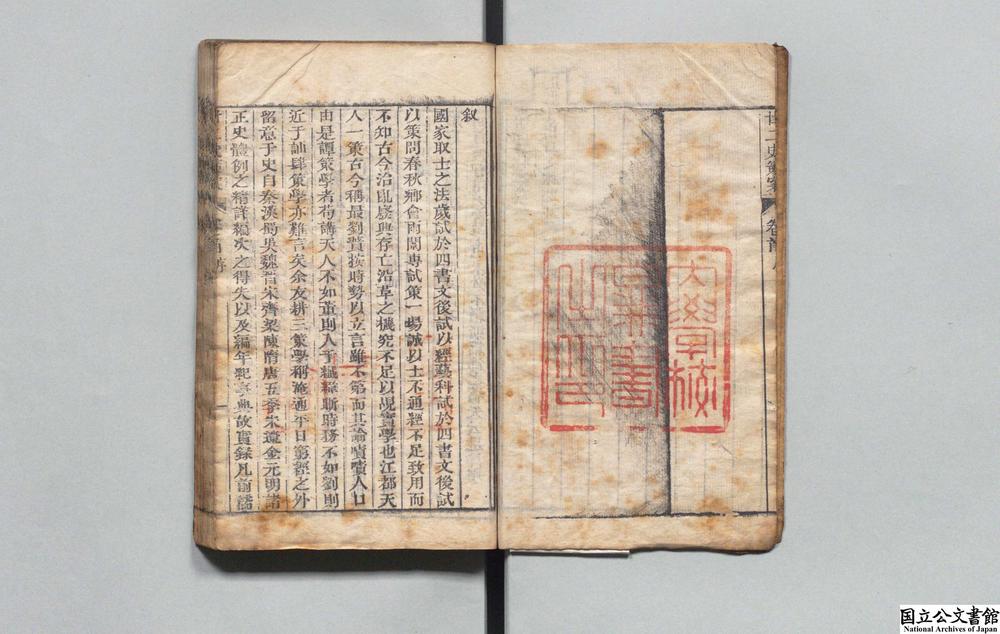 叙
國家取士之法歲試於四書文後試以經藝科試於四書文後試
以策問春秋鄉會兩闈專試策一場誠以士不通經不足致用而
不知古今治亂廢興存亡沿革之機究不足以覘實學也江都天
人一策古今稱最劉蕡按時勢以立言雖不第而其論嘖嘖人口
由是譚策學者苟講天人不如董則入于穢緯斷時務不如劉則
近于訕肆策學亦難言矣余友耕三策學稱淹通平日窮經之外
留意于史自秦漢蜀吳魏晉宋齊梁陳隋唐五季宋遼金元明諸
正史體例之精詳編次之得失以及編年紀事典故實錄凡前儒
一
廿一史策案
卷首 序
國立公文書館
National Archives of Japan